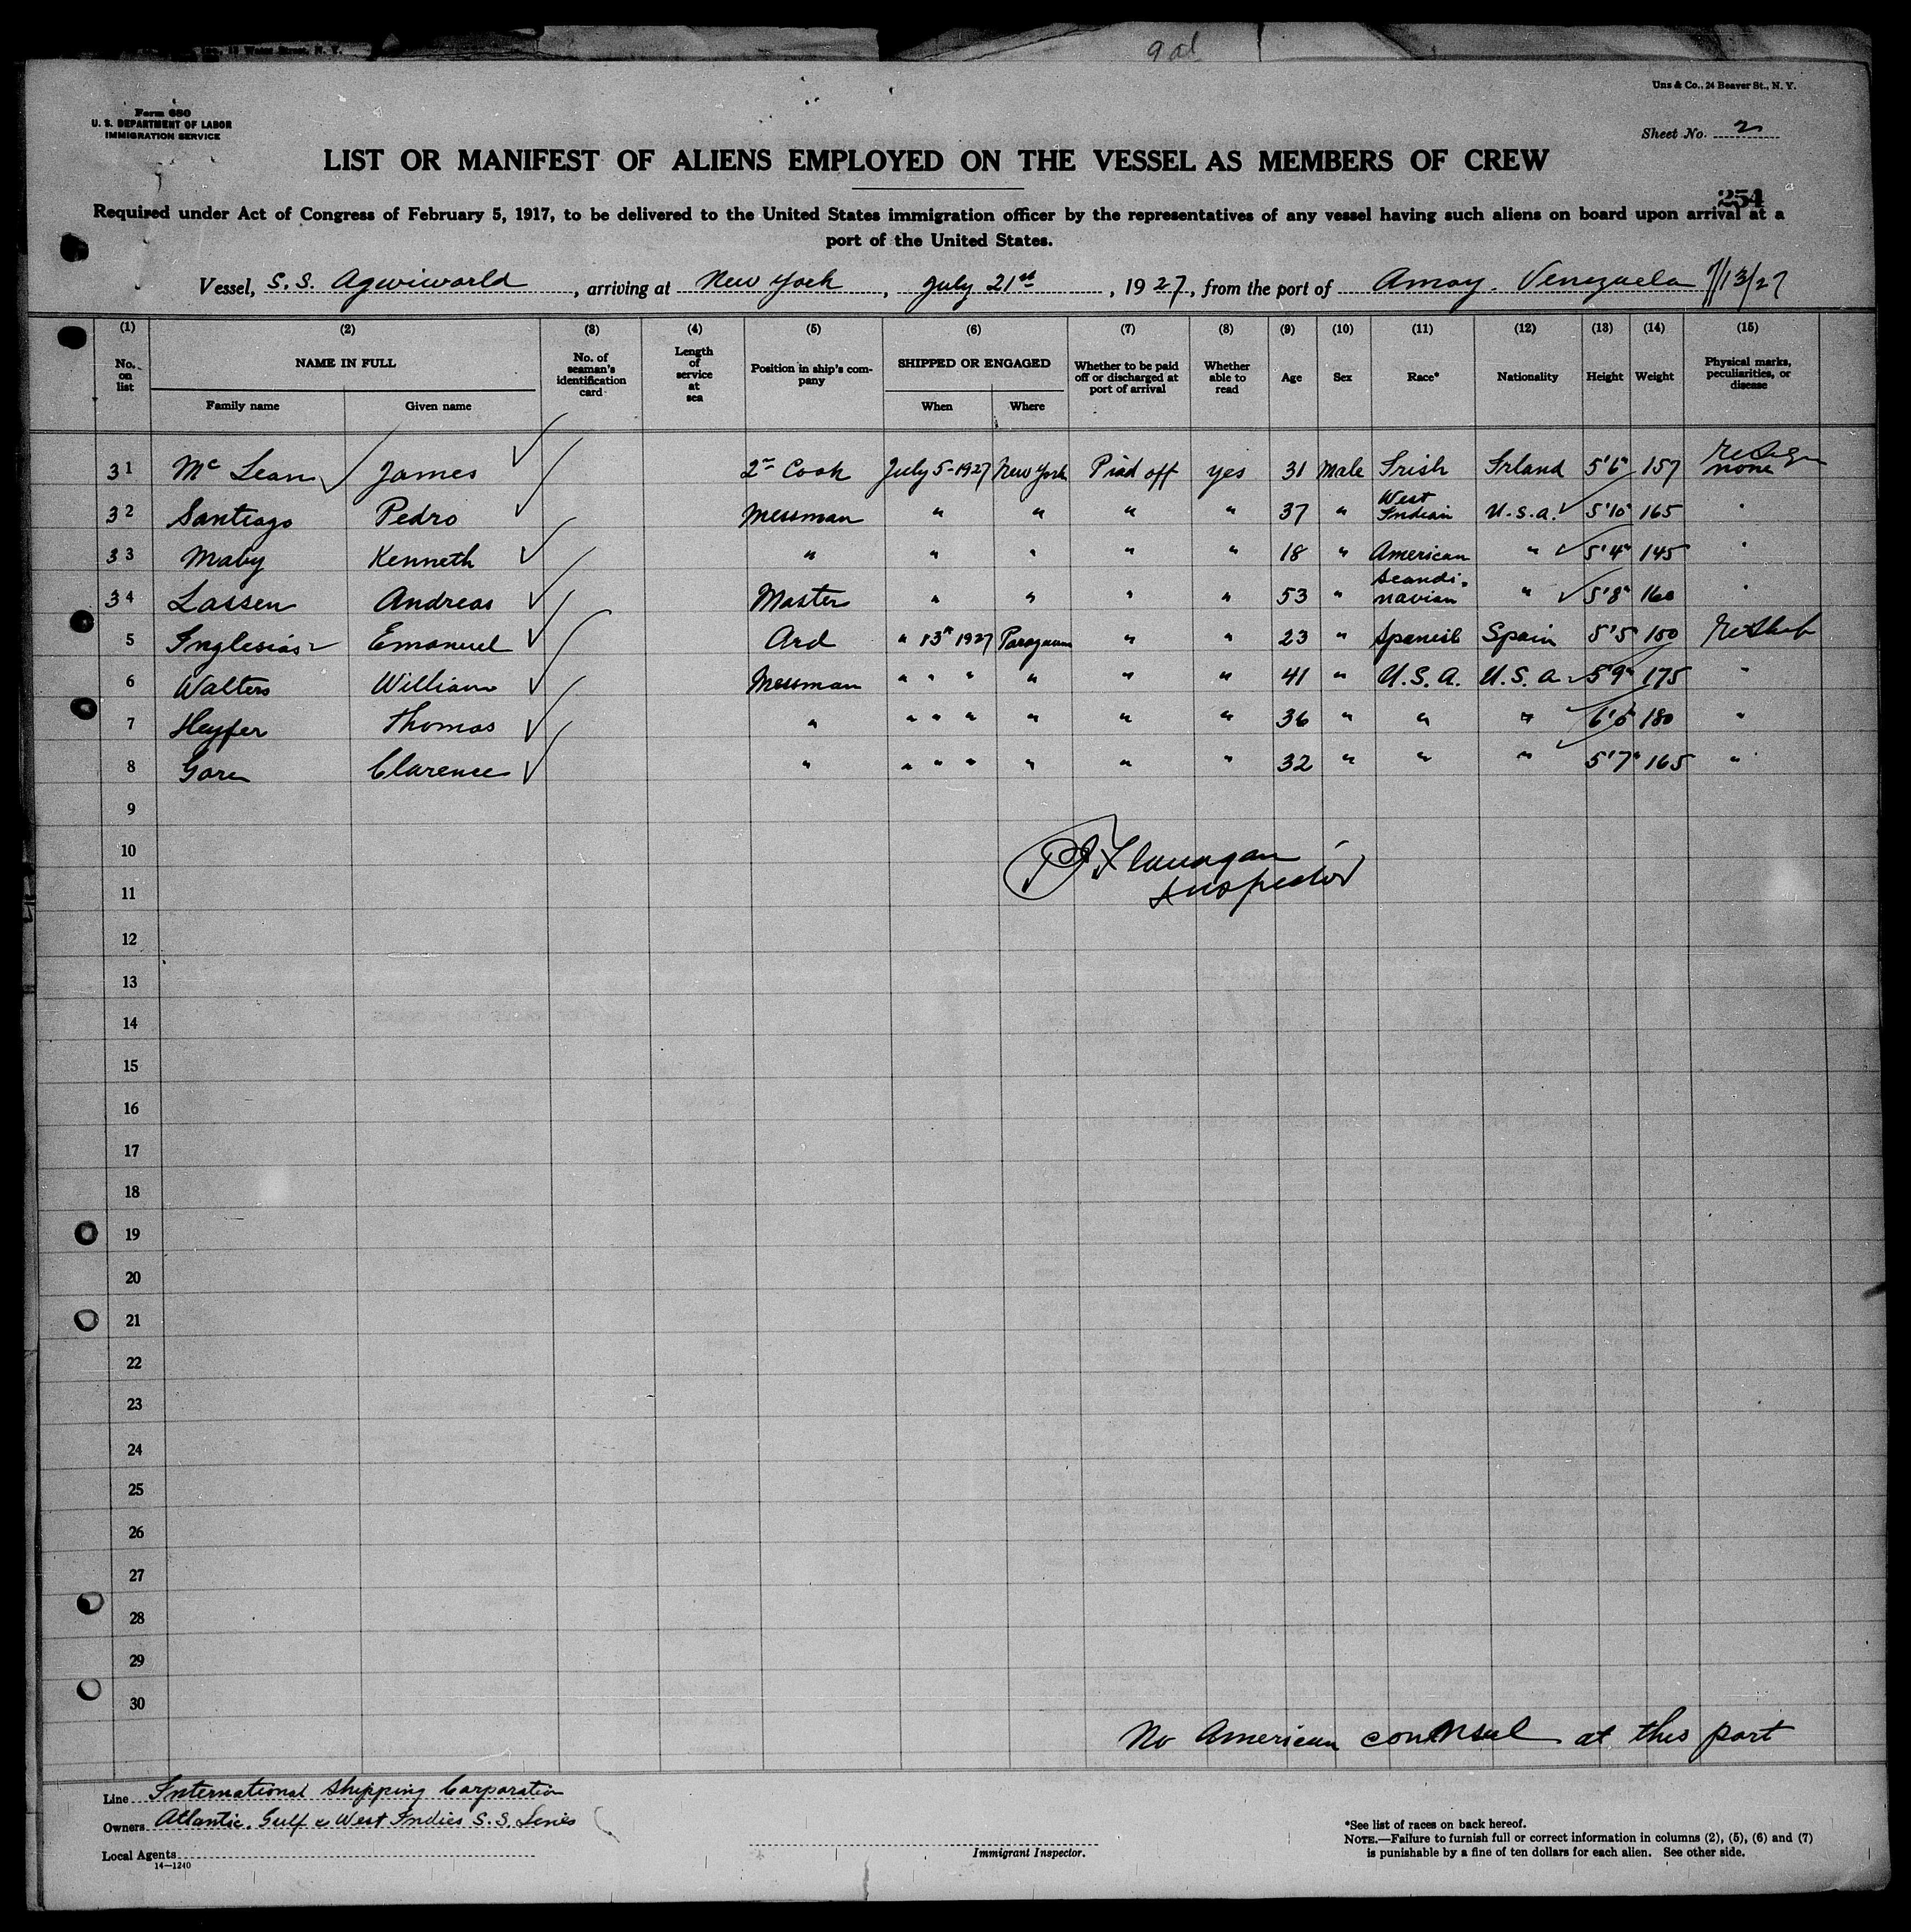 9 al
Uns & Co., 24 Beaver St., N. Y.
Form 680
U. S. DEPARTMENT OF LABOR
IMMIGRATION SERVICE
Sheet No. 2
LIST OR MANIFEST OF ALIENS EMPLOYED ON THE VESSEL AS MEMBERS OF CREW
254
Required under Act of Congress of February 5, 1917, to be delivered to the United States immigration officer by the representatives of any vessel having such aliens on board upon arrival at a
port of the United States.
Vessel, S.S. Agwiworld, arriving at New York, July 21st, 1927, from the port of Amay. Venezuela 7/13/27
(1) (2) (3) (4) (5) (6) (7) (8) (9) (10) (11) (12) (13) (14) (15)
No. on list NAME IN FULL Family name Given name No. of seaman's identification card Length of service at sea Position in ship's company SHIPPED OR ENGAGED When Where Whether to be paid off or discharged at port of arrival Whether able to read Age Sex Race* Nationality Height Weight Physical marks, peculiarities, or disease
31 Mc Lean James 2nd Cook July 5-1927 New York Piad off yes 31 Male Irish Irland 5'6" 157 none
32 Santiago Pedro Messman " " " " 37 " West Indian U.S.a. 5'10" 165 "
33 Maby Kenneth " " " " " 18 " American " 5'4" 145 "
34 Lassen Andreas Master " " " " 53 " Scandinavian " 5'8" 160 "
5 Inglesias Emanuel Ard " 13th 1927 " " 23 " Spanish Spain 5'5 150 ReShip
6 Walters William Messman " " " " " " 41 " U.S.A. U.S.a. 5'9" 175 "
7 Heyfer Thomas " " " " " " " 36 " " " 180 "
8 Gore Clarence " " " " " " " 32 " " " 5'7" 165 "
9
10
11
Flanagan
Inspector
12
13
14
15
16
17
18
19
20
21
22
23
24
25
26
27
28
29
30
No American counsul at this port
Line International Shipping Corporation
Owners Atlantic. Gulf & West Indies S.S. Lines
Local Agents
14—1240
Immigrant Inspector.
*See list of races on back hereof.
NOTE.—Failure to furnish full or correct information in columns (2), (5), (6) and (7)
is punishable by a fine of ten dollars for each alien. See other side.